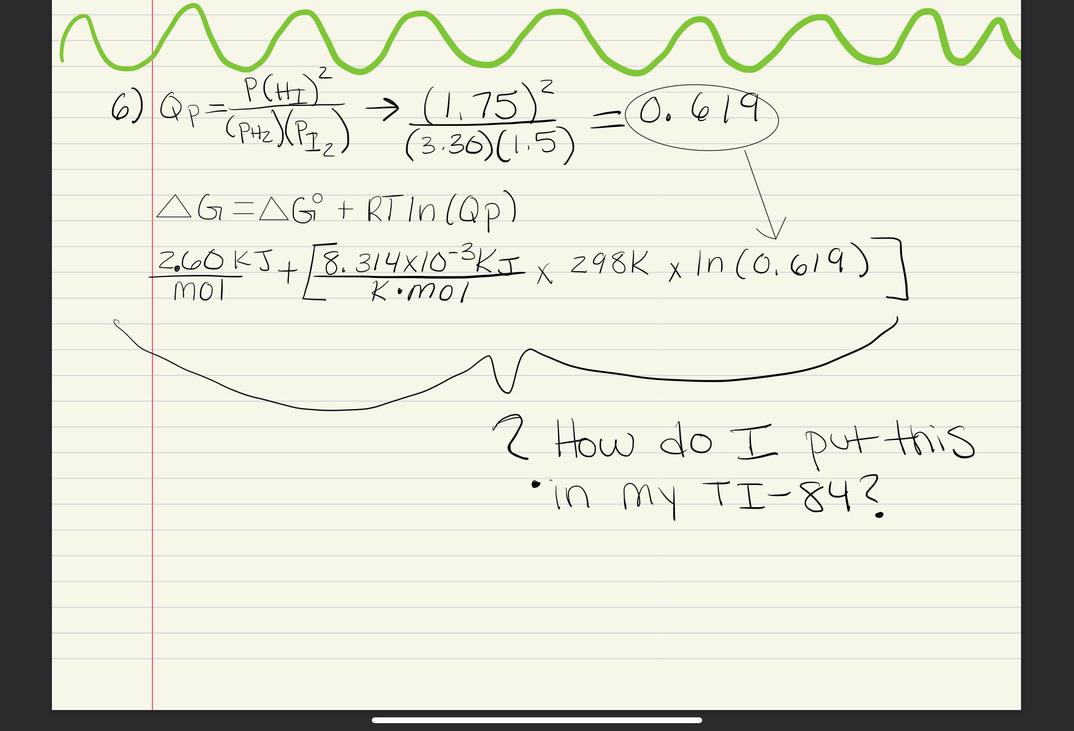 6) Qp = P(HI)² / (PH2)(PI₂) → (1.75)² / (3.30)(1.5) = 0.619
△G = △G° + RT ln (Qp)
2.60 KJ / mol + [8.314x10⁻³ KJ / K•mol x 298K x ln (0.619)]
? How do I put this
in my TI-84?